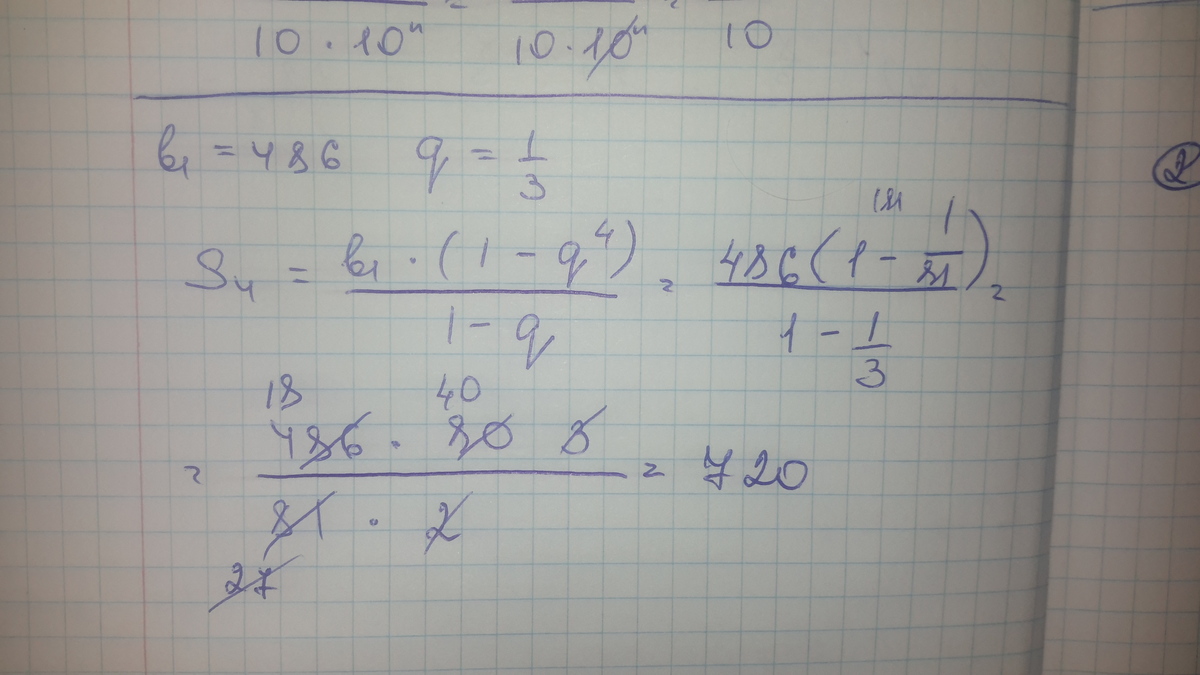 10 · 10ⁿ 10 · 10ⁿ 10
b₁ = 486 q = 1/3
S₄ = b₁ · (1 - q⁴) / 1 - q = 486(1 - 1/81) / 1 - 1/3 =
18 40
= 486 · 80 3 / 81 · 2 = 720
27
2